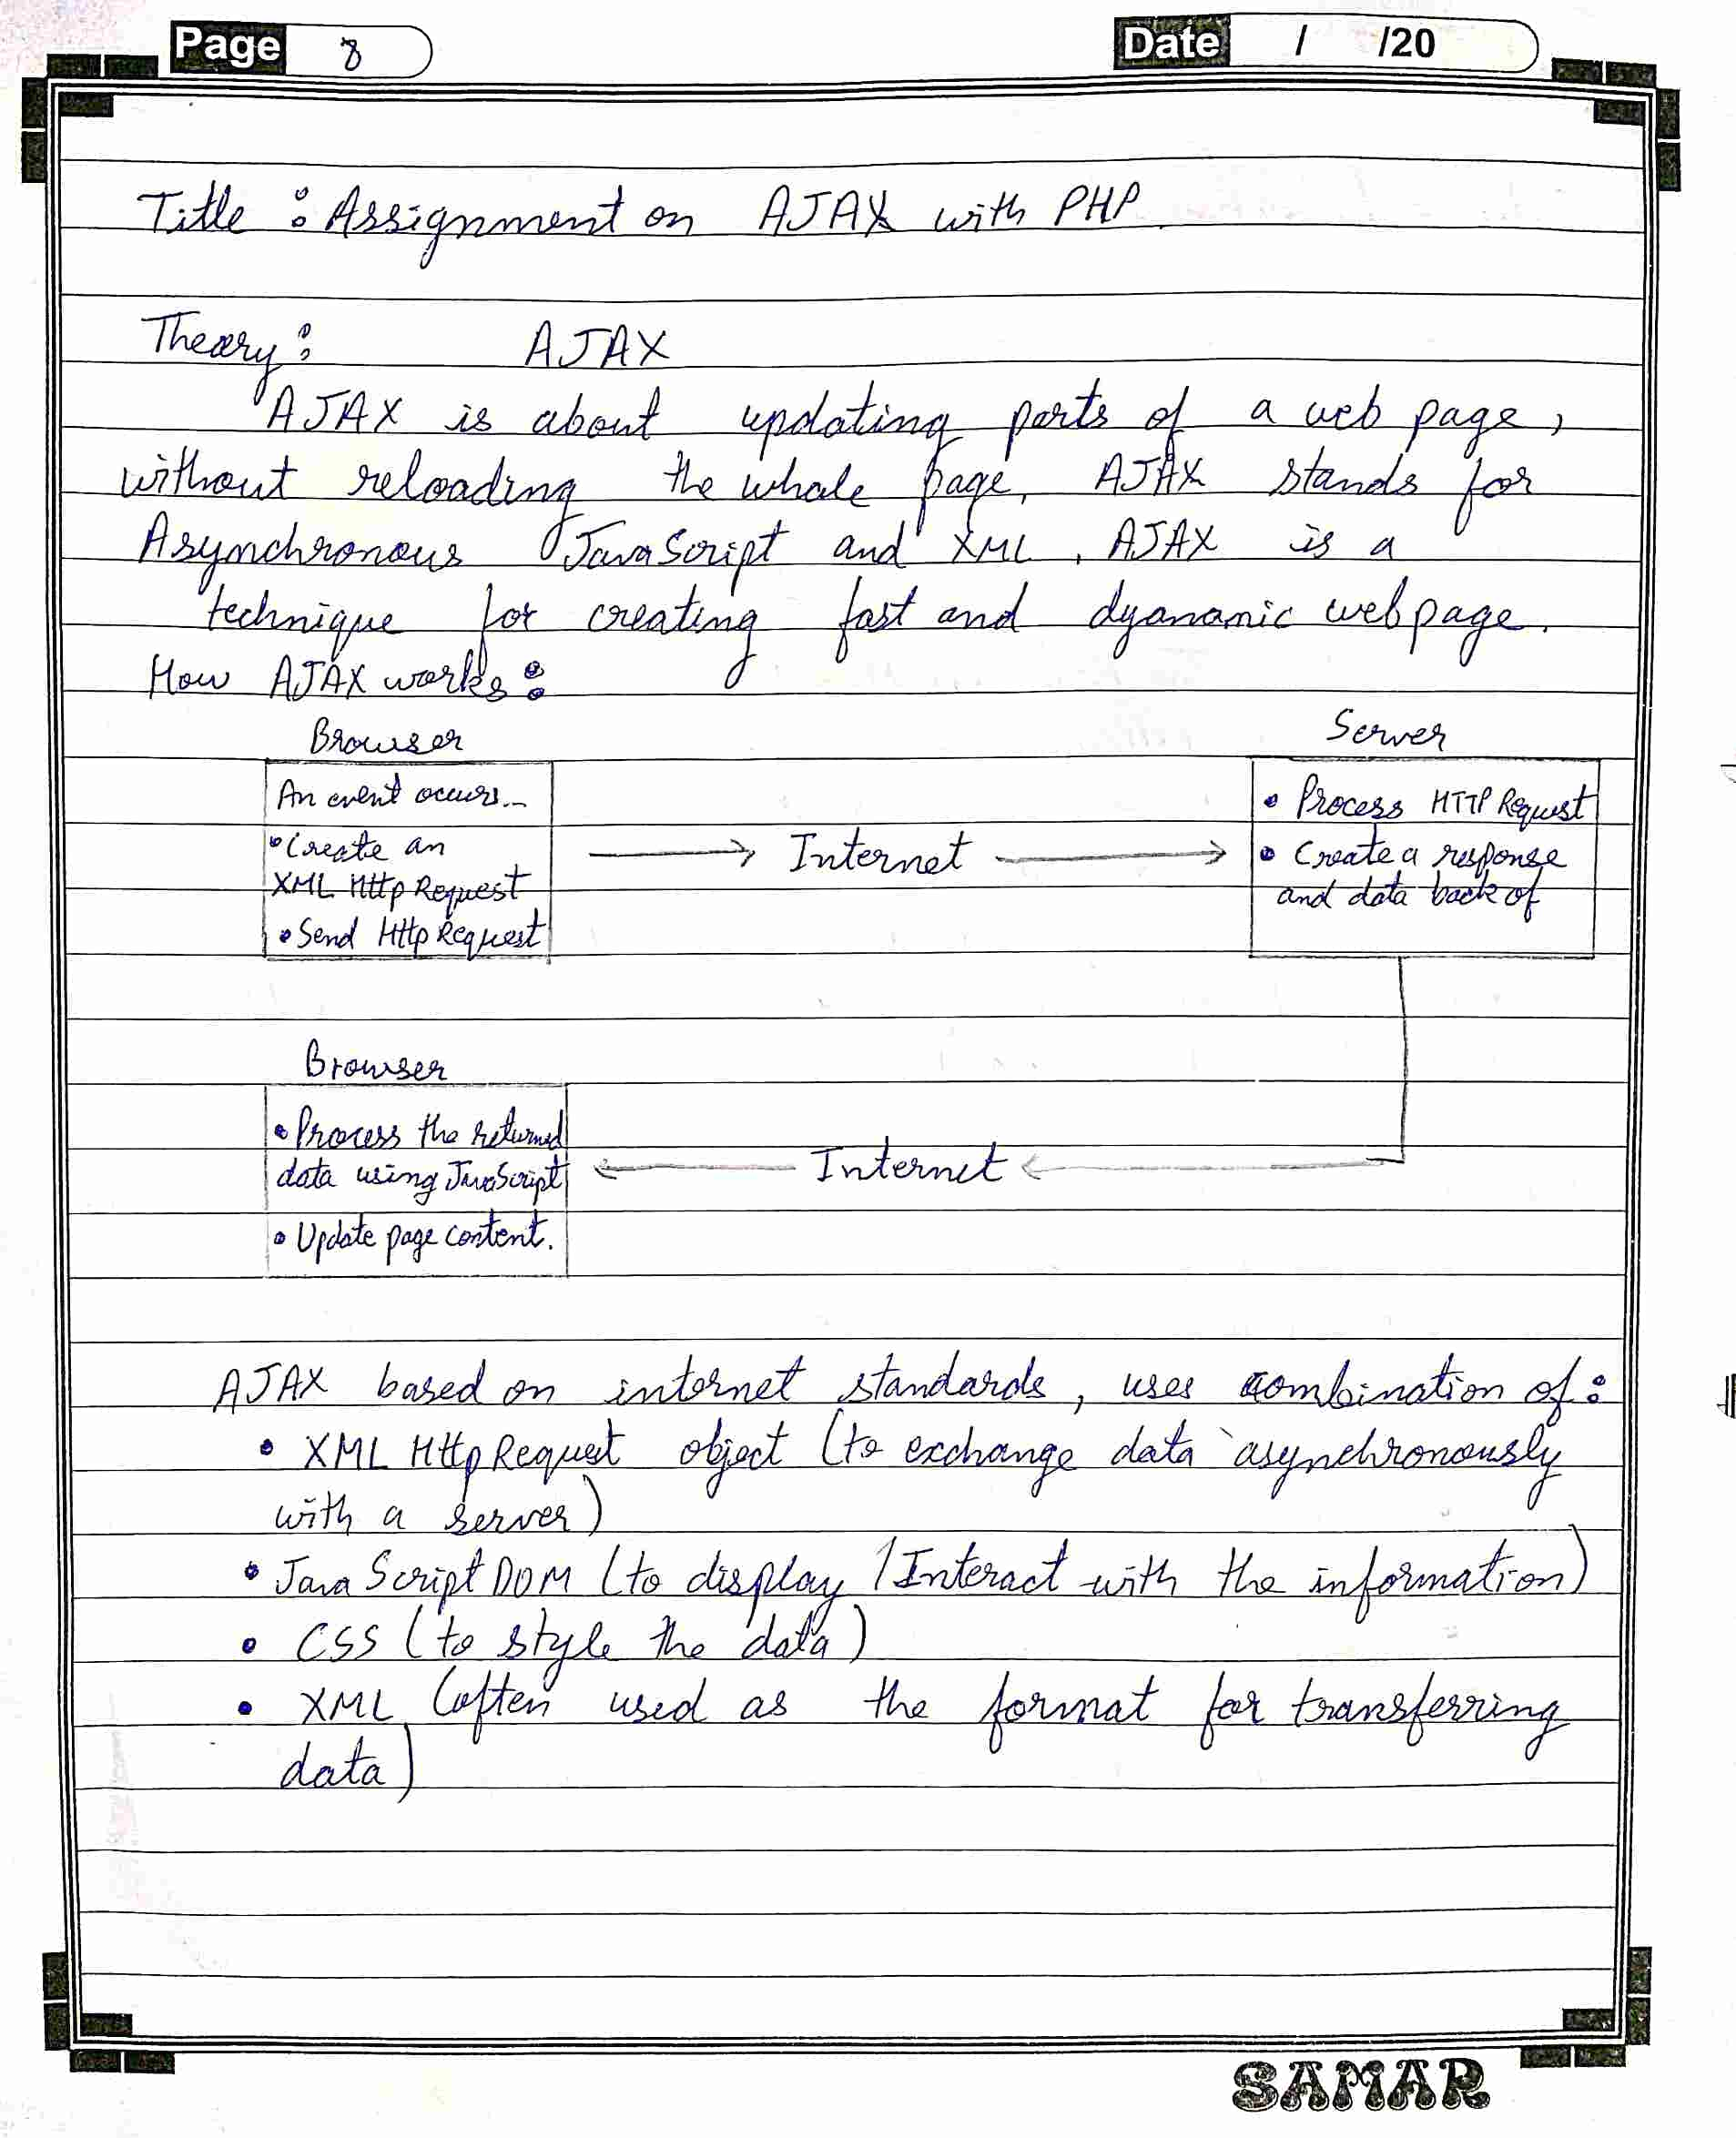 Page 8
Date / /20
Title : Assignment on AJAX with PHP
Theory : AJAX
AJAX is about updating parts of a web page,
without reloading the whole page. AJAX stands for
Asynchronous JavaScript and XML. AJAX is a
technique for creating fast and dyanamic webpage.
How AJAX works :
Browser
An event occurs...
• Create an
XML HttpRequest
• Send HttpRequest
Internet
Server
• Process HTTP Request
• Create a response
and data back of
Browser
• Process the returned
data using JavaScript
• Update page content.
Internet
AJAX based on internet standards, uses combination of :
• XML HttpRequest object (to exchange data asynchronously
with a server)
• JavaScript DOM (to display / Interact with the information)
• CSS (to style the data)
• XML (often used as the format for transferring
data)
SAMAR